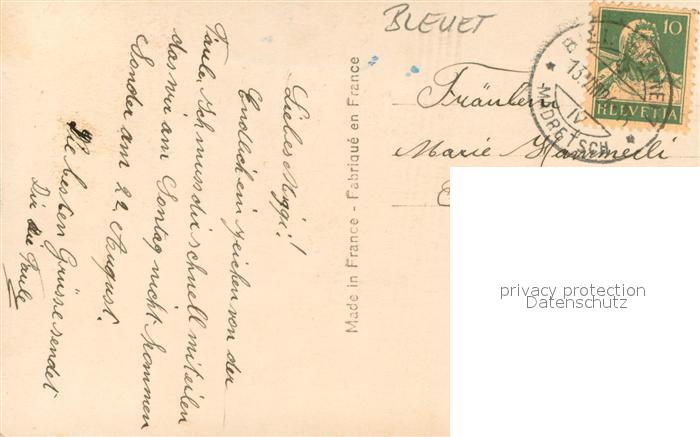 BLEUET
10
HELVETIA
BIEL
13. VIII
IV
MADRETSCH
Fräulein
Marie Hämmerli
Made in France - Fabriqué en France
Liebes Miggi!
Endlich ein zeichen von der
Paula. Ich mus dir schnell miteilen
das wir am Sontag nicht kommen
Sonder am 22 August.
Die besten Grüsse sendet
Dir die Paula
privacy protection
Datenschutz